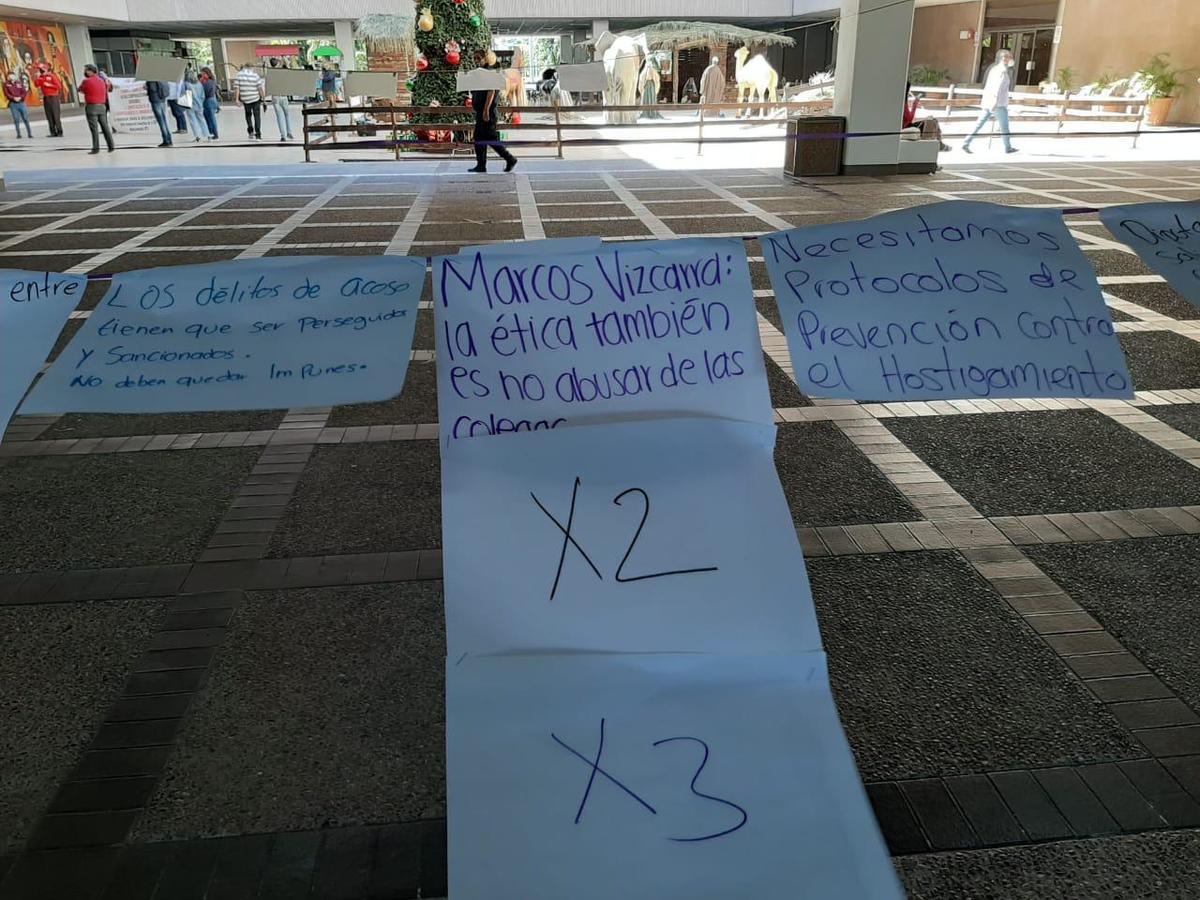 entre
Los délitos de acoso
tienen que ser Perseguidos
Y Sancionados.
No deben quedar Impunes.
Marcos Vizcarra:
la ética también
es no abusar de las
colegas
X2
X3
Necesitamos
Protocolos de
Prevención contra
el Hostigamiento